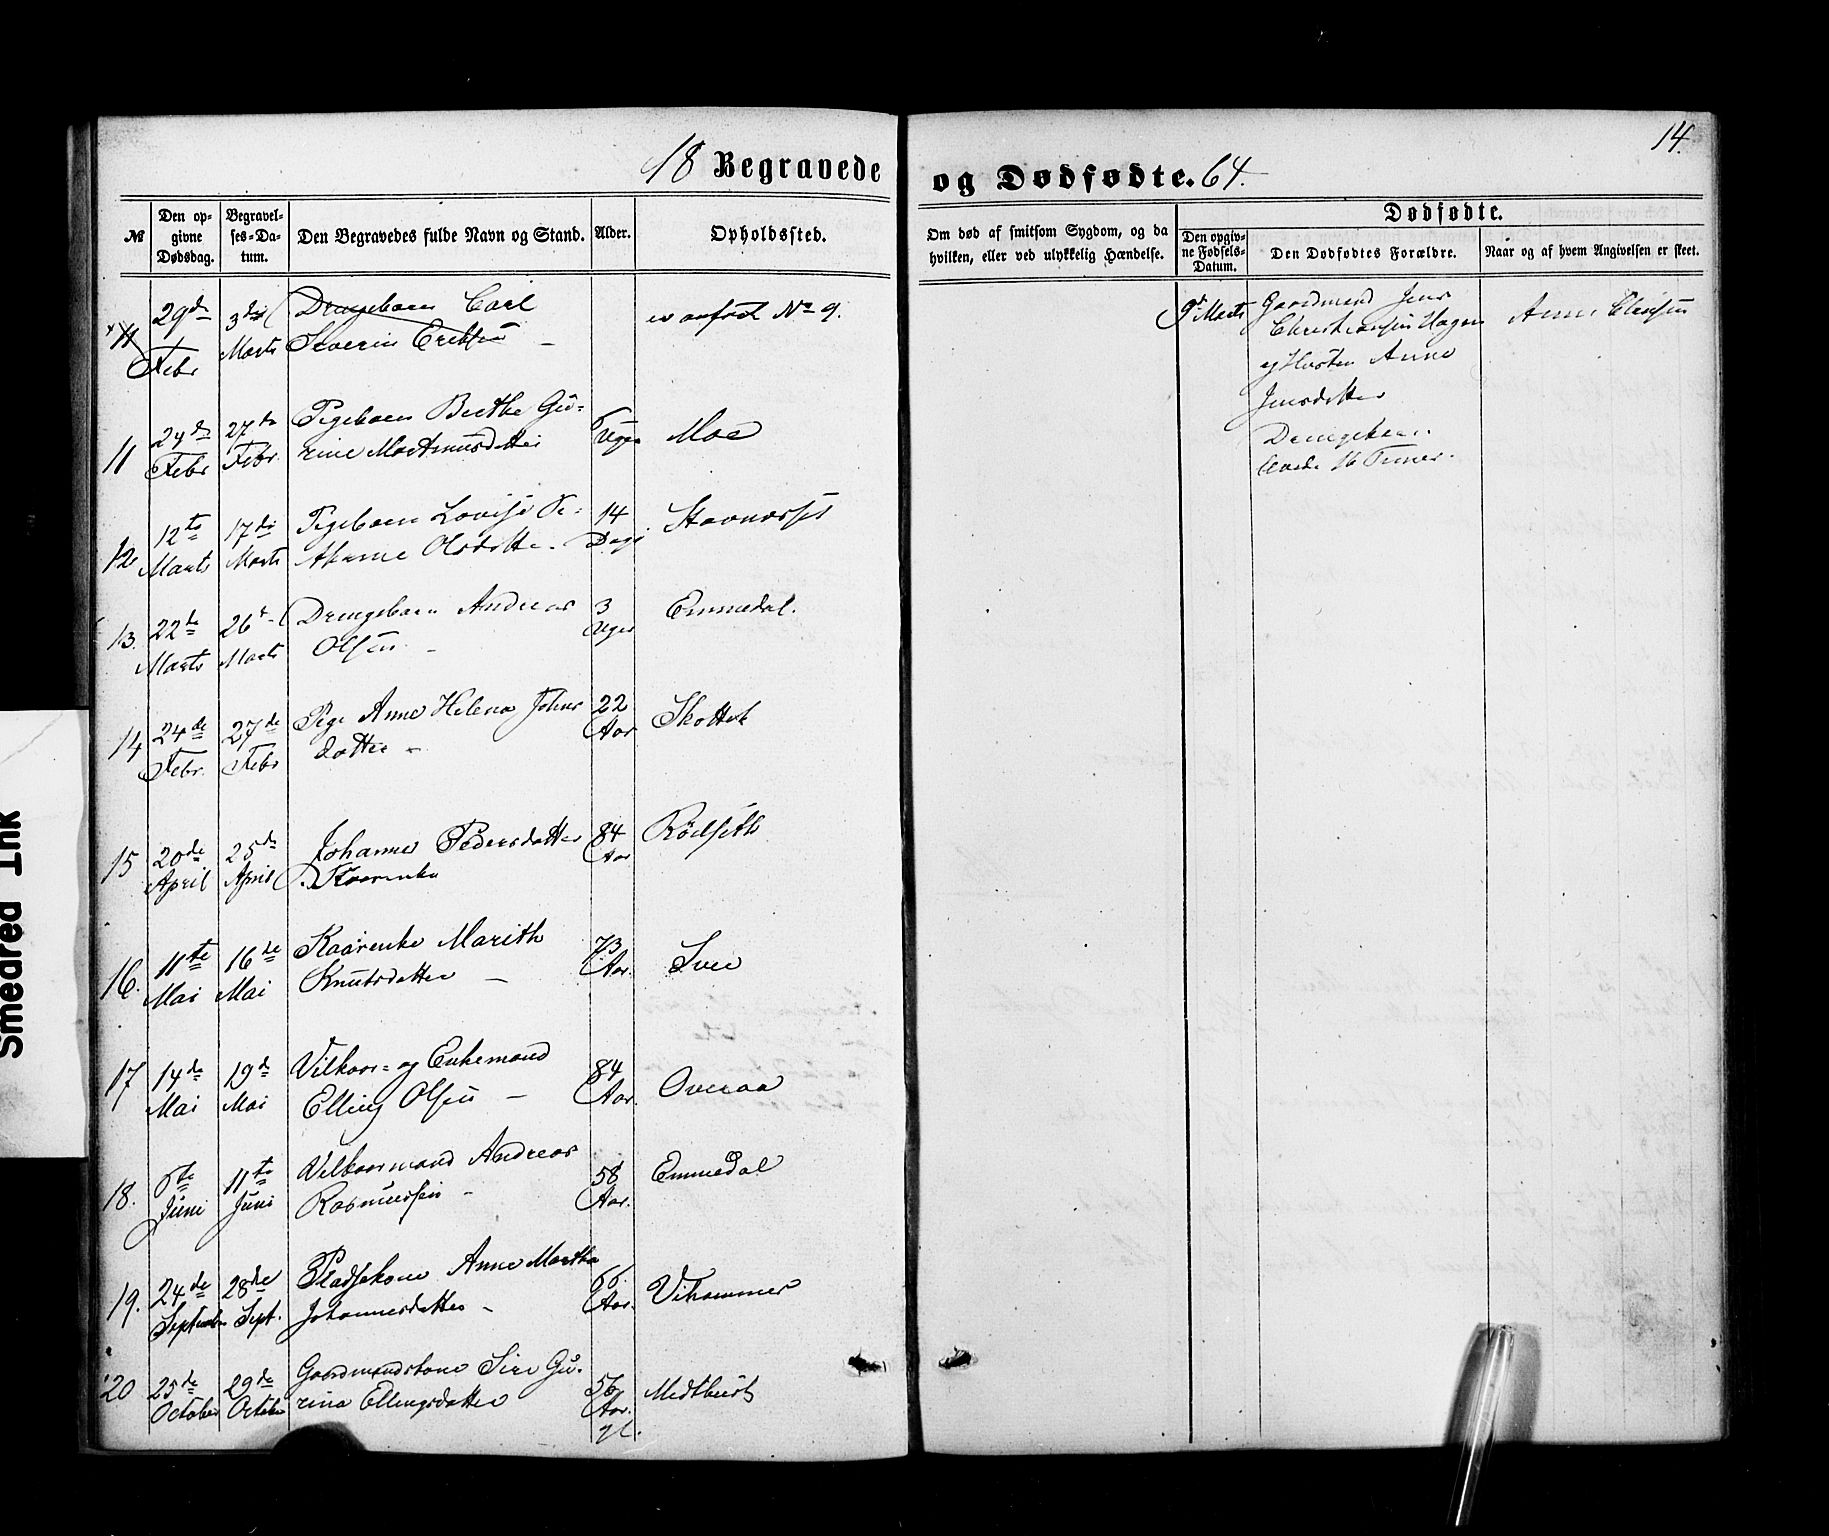 14.
18 Begravede og Dødfødte. 64.
№
Den opgivne Dødsdag.
Begravelses-Datum.
Den Begravedes fulde Navn og Stand.
Alder.
Opholdssted.
Om død af smitsom Sygdom, og da hvilken, eller ved ulykkelig Hændelse.
Dødfødte.
Den opgivne Fødsels-Datum.
Den Dødfødtes Forældre.
Naar og af hvem Angivelsen er skeet.
11 29de Febr 3die Marts Drengebarn Carl
Severin
anført No 9.
11 24de Febr 27de Febr. Pigebarn Berthe Gu-
rine Uger Moe
12 12te Marts 17de Marts Pigebarn Lovise Pe-
Olsdatter 14 Dage
13. 22de Marts 26de Marts Drengebarn Andreas
Olsen 3 Uger Emmedal.
14 24de Febr. 27de Febr Pige Anne Helena Johns
datter 22 Aar
15 20de April 25de April Johanne Pedersdatter
84 Aar Rødseth
16. 11te Mai 16de Mai Kaarenke Marith
Knutsdatter 73 Aar. Sve
17 14de Mai 19de Mai Vilkaars- og Enkemand
Elling Olsen 84 Aar. Overaa
18. 6te Juni 11te Juni Vilkaarmand Andreas
Rasmussen 58 Aar. Emmedal
19. 24de September 28de Sept. Pladsekone Anne Martha
Johannesdatter 66 Aar. Vihammer
20 25de October 29de October Gaardmandskone Siri Gu-
rina Ellingsdatter 56 Aar. gl.
9de Marts
Gaardmand Jens
Christiansen
og Hustru Anne
Jensdatter
Drengebarn
levede 16 Timer.
Anne
Smedred Ink